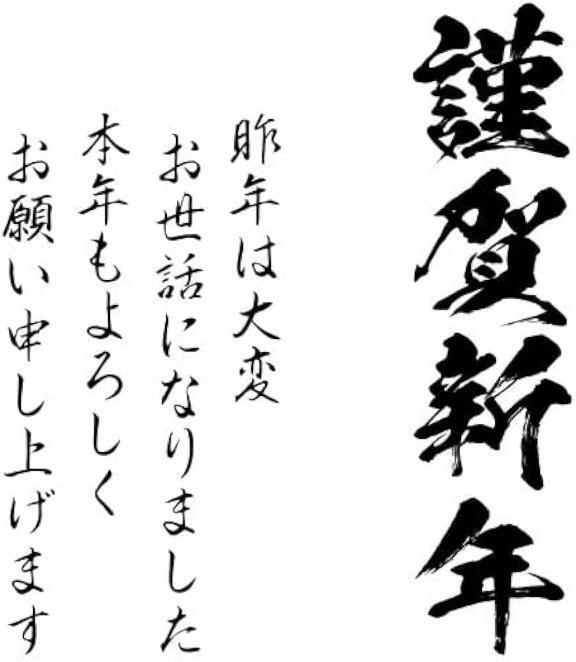 謹賀新年
昨年は大変
お世話になりました
本年もよろしく
お願い申し上げます